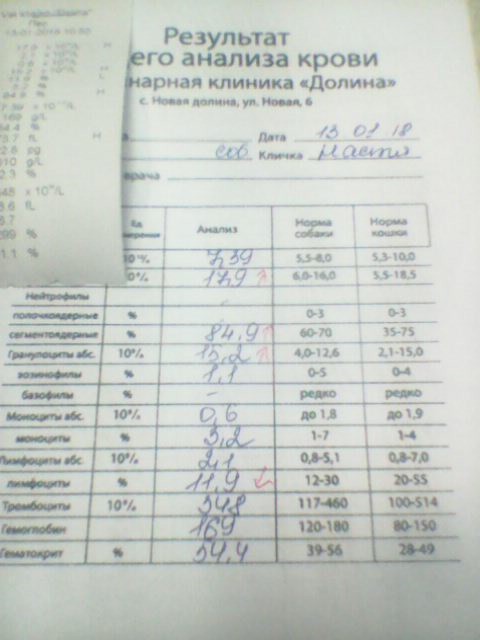 13-01-2018 10:50
17.9 x 10^9/L H
84.9 % H
7.39 x 10^12/L
169 g/L
54.4 %
73.7 fL H
22.8 pg
310 g/L
12.3 %
348 x 10^9/L
1.1 %
Результат
его анализа крови
нарная клиника «Долина»
с. Новая долина, ул. Новая, 6
Дата 13 01 18
соб Кличка Настя
врача
Ед. Анализ Норма собаки Норма кошки
10¹²/ 7,39 5,5-8,0 5,3-10,0
10⁹/ 17,9 ↑ 6,0-16,0 5,5-18,5
Нейтрофилы
полочкоядерные % - 0-3 0-3
сегментоядерные % 84,9 ↑ 60-70 35-75
Гранулоциты абс. 10⁹/ 15,2 ↑ 4,0-12,6 2,1-15,0
эозинофилы % 1,1 0-5 0-4
базофилы % - редко редко
Моноциты абс. 10⁹/ 0,6 до 1,8 до 1,9
моноциты % 3,2 1-7 1-4
Лимфоциты абс. 10⁹/ 2,1 0,8-5,1 0,8-7,0
лимфоциты % 11,9 ↓ 12-30 20-55
Тромбоциты 10⁹/ 348 117-460 100-514
Гемоглобин 169 120-180 80-150
Гематокрит % 54,4 39-56 28-49